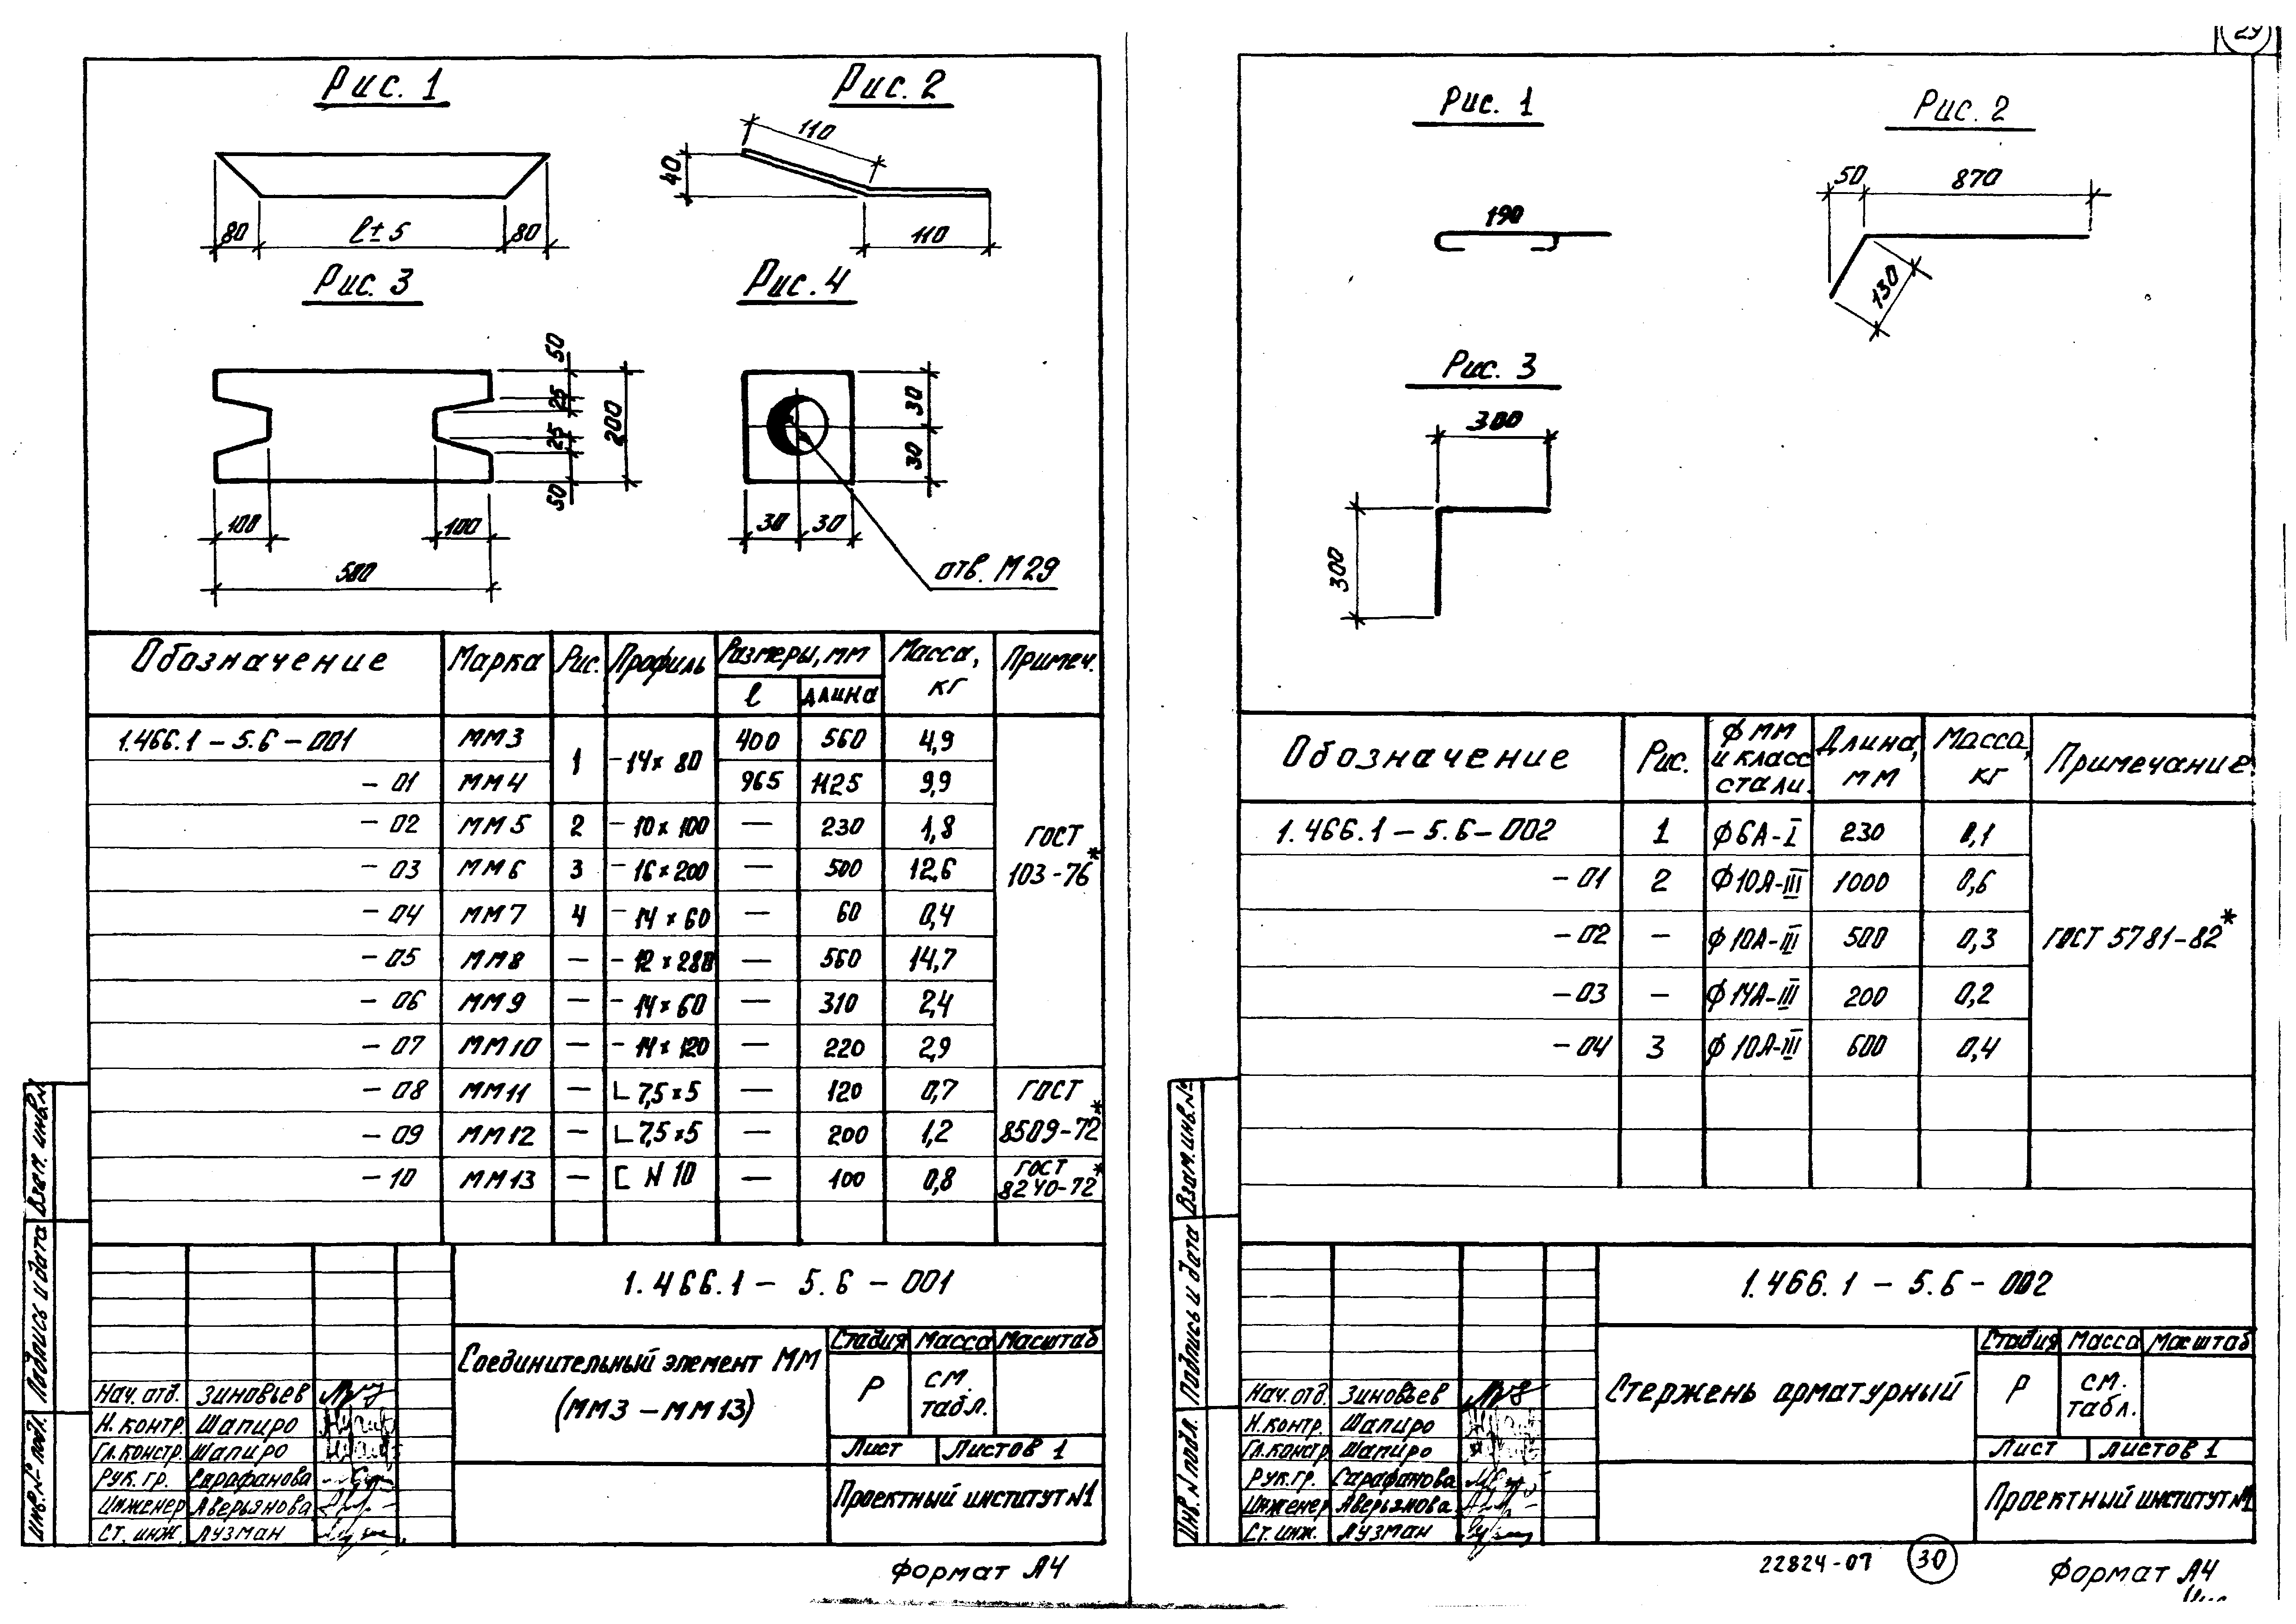 Рис. 1
80
ℓ±5
80
Рис. 2
110
40
110
Рис. 3
50
25
25
50
200
100
100
500
Рис. 4
30
30
30
30
отв. М29
Обозначение Марка Рис. Профиль Размеры, мм Масса, кг Примеч.
ℓ длина
1.466.1 – 5.6 – 001 ММ3 1 – 14 × 80 400 560 4,9 ГОСТ 103-76*
– 01 ММ4 965 1125 9,9
– 02 ММ5 2 – 10 × 100 — 230 1,8
– 03 ММ6 3 – 16 × 200 — 500 12,6
– 04 ММ7 4 – 14 × 60 — 60 0,4
– 05 ММ8 – – 12 × 280 — 560 14,7
– 06 ММ9 – – 14 × 60 — 310 2,4
– 07 ММ10 – – 14 × 120 — 220 2,9
– 08 ММ11 – L 7,5 × 5 — 120 0,7 ГОСТ 8509-72*
– 09 ММ12 – L 7,5 × 5 — 200 1,2
– 10 ММ13 – [ N 10 — 100 0,8 ГОСТ 8240-72*
1.466.1 – 5.6 – 001
Соединительный элемент ММ
(ММ3 – ММ13)
Стадия Масса Масштаб
Р см. табл.
Лист Листов 1
Проектный институт №1
Нач. отд. Зиновьев
Н. контр. Шапиро
Гл. констр. Шапиро
Рук. гр. Сарафанова
Инженер Аверьянова
Ст. инж. Лузман
Инв. № подл. Подпись и дата Взам. инв. №
Формат А4
29
Рис. 1
190
Рис. 2
50
870
130
Рис. 3
300
300
Обозначение Рис. ф мм и класс стали. Длина, мм Масса, кг Примечание
1.466.1 – 5.6 – 002 1 ф6А-I 230 0,1 ГОСТ 5781-82*
– 01 2 ф10А-III 1000 0,6
– 02 – ф10А-III 500 0,3
– 03 – ф14А-III 200 0,2
– 04 3 ф10А-III 600 0,4
1.466.1 – 5.6 – 002
Стержень арматурный
Стадия Масса Масштаб
Р см. табл.
Лист Листов 1
Проектный институт №1
Нач. отд. Зиновьев
Н. контр. Шапиро
Гл. констр. Шапиро
Рук. гр. Сарафанова
Инженер Аверьянова
Ст. инж. Лузман
Инв. № подл. Подпись и дата Взам. инв. №
22824-07 30
Формат А4